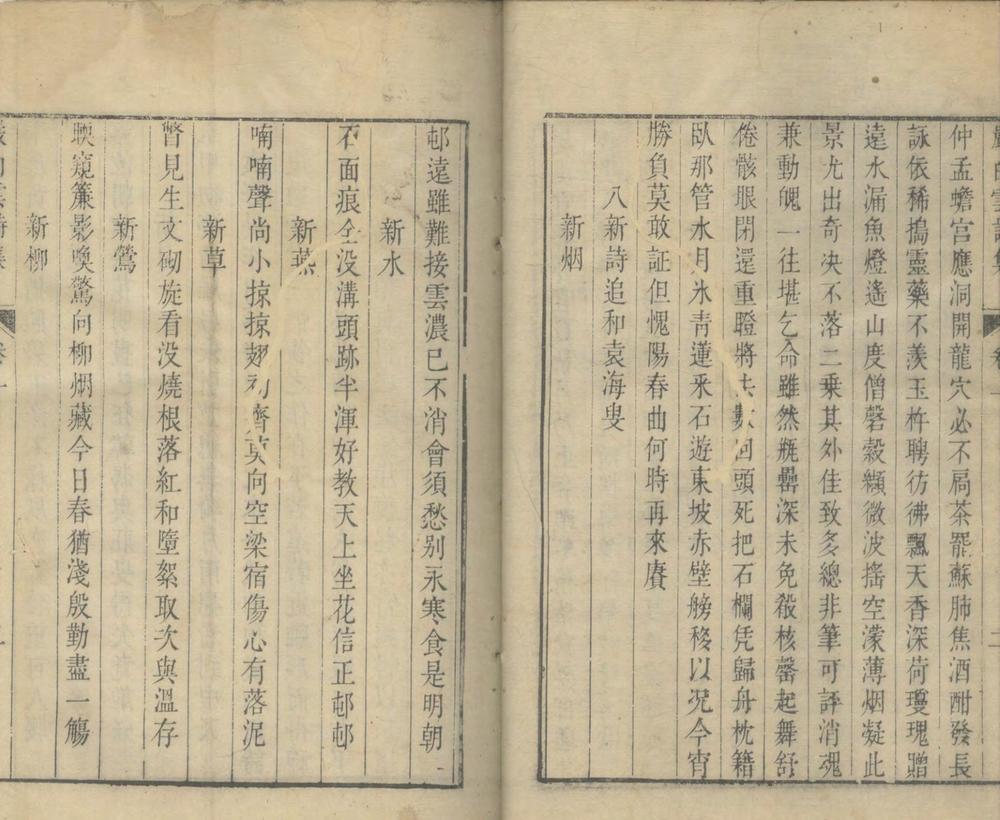 仲孟蟾宮應洞開龍穴必不扃茶罷蘇肺焦酒酣發長
詠依稀搗靈藥不羨玉杵聘彷彿飄天香深荷瓊瑰贈
遠水漏魚燈遙山度僧磬縠纈微波搖空濛薄烟凝此
景尤出奇决不落二乗其外佳致多總非筆可評消魂
兼動魄一往堪乞命雖然甁罍深未免殽核罄起舞舒
倦骸眼閉還重瞪將去數回頭死把石欄凭歸舟枕籍
臥那管水月氷青蓮釆石遊東坡赤壁艕移以况今宵
勝負莫敢証但愧陽春曲何時再來賡
八新詩追和袁海叟
新烟
邨遠雖難接雲濃已不消會須愁别永寒食是明朝
新水
石面痕全没溝頭跡半渾好教天上坐花信正邨邨
新燕
喃喃聲尚小掠掠翅初齊莫向空梁宿傷心有落泥
新草
瞥見生文砌旋看没燒根落紅和墮絮取次與溫存
新鶯
映窺簾影喚驚向柳烟藏今日春猶淺殷勤盡一觴
新柳